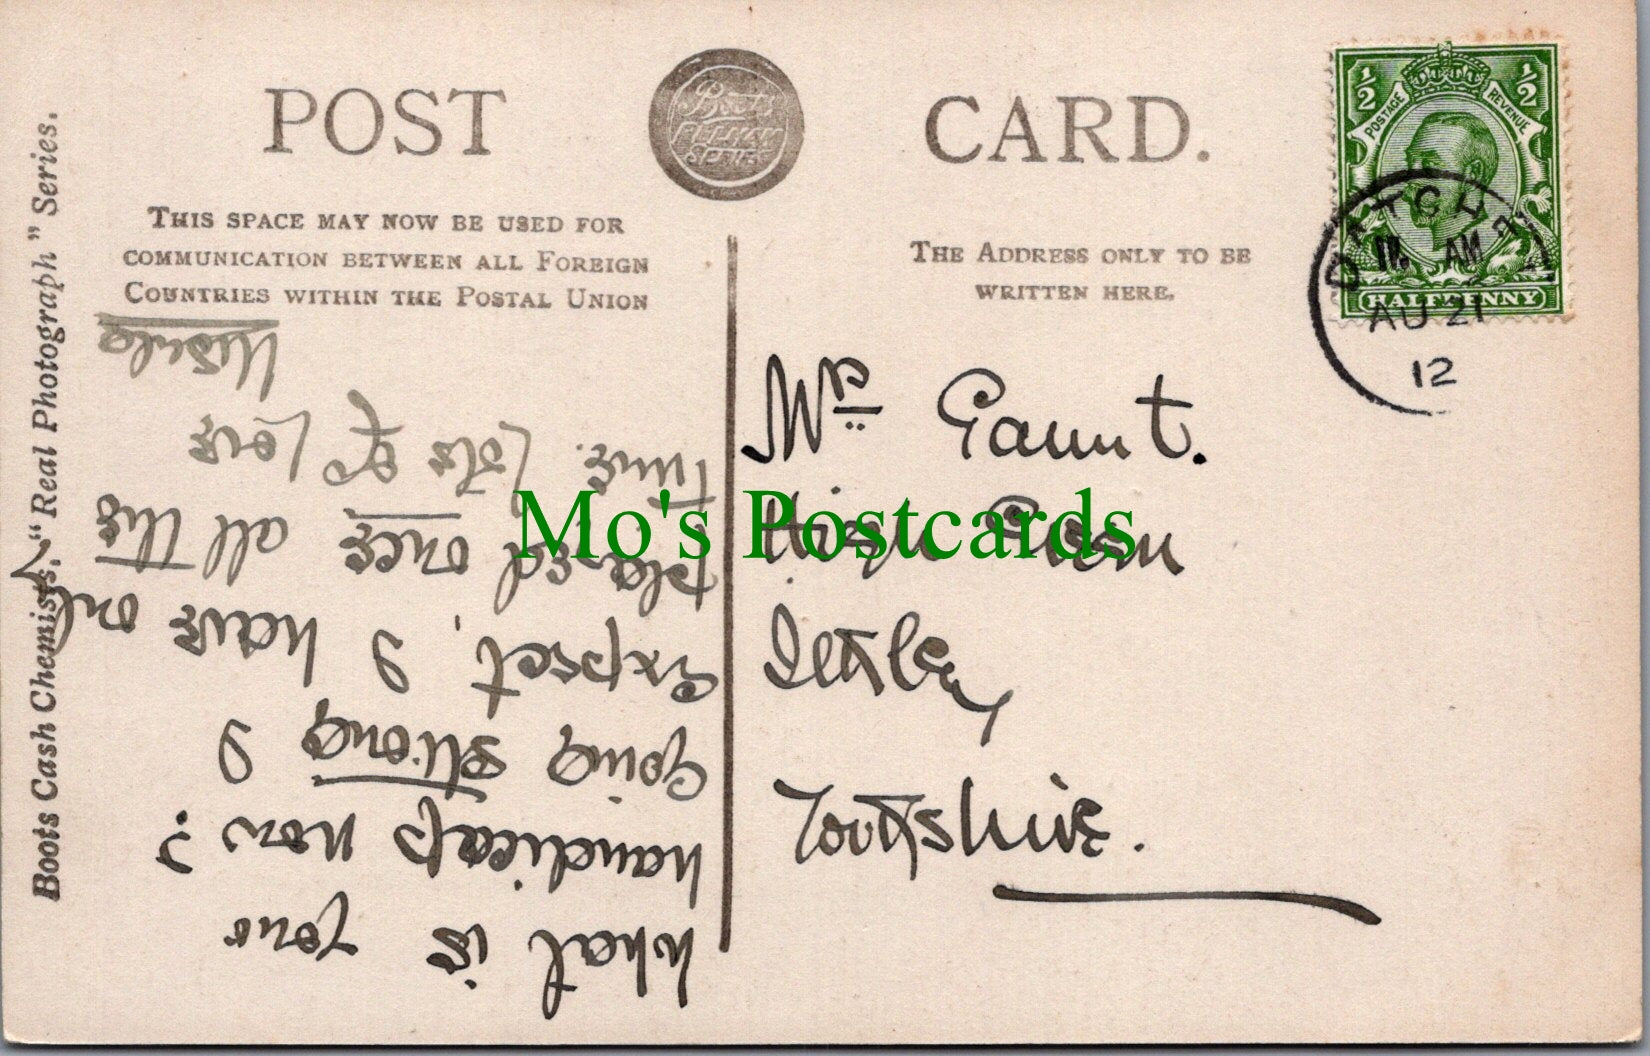 POST CARD.
Boots
PELHAM
SERIES
THIS SPACE MAY NOW BE USED FOR
COMMUNICATION BETWEEN ALL FOREIGN
COUNTRIES WITHIN THE POSTAL UNION
THE ADDRESS ONLY TO BE
WRITTEN HERE.
Boots Cash Chemists, "Real Photograph" Series.
½ ½
POSTAGE REVENUE
HALFPENNY
DATCHET
AM
AU 21
12
Mrs Gaunt.
High Green
Ilkley
Yorkshire.
What is your
handicap now?
Going strong I
Expect, I have only
played once all this
time. Lots of love
Ursula
Mo's Postcards